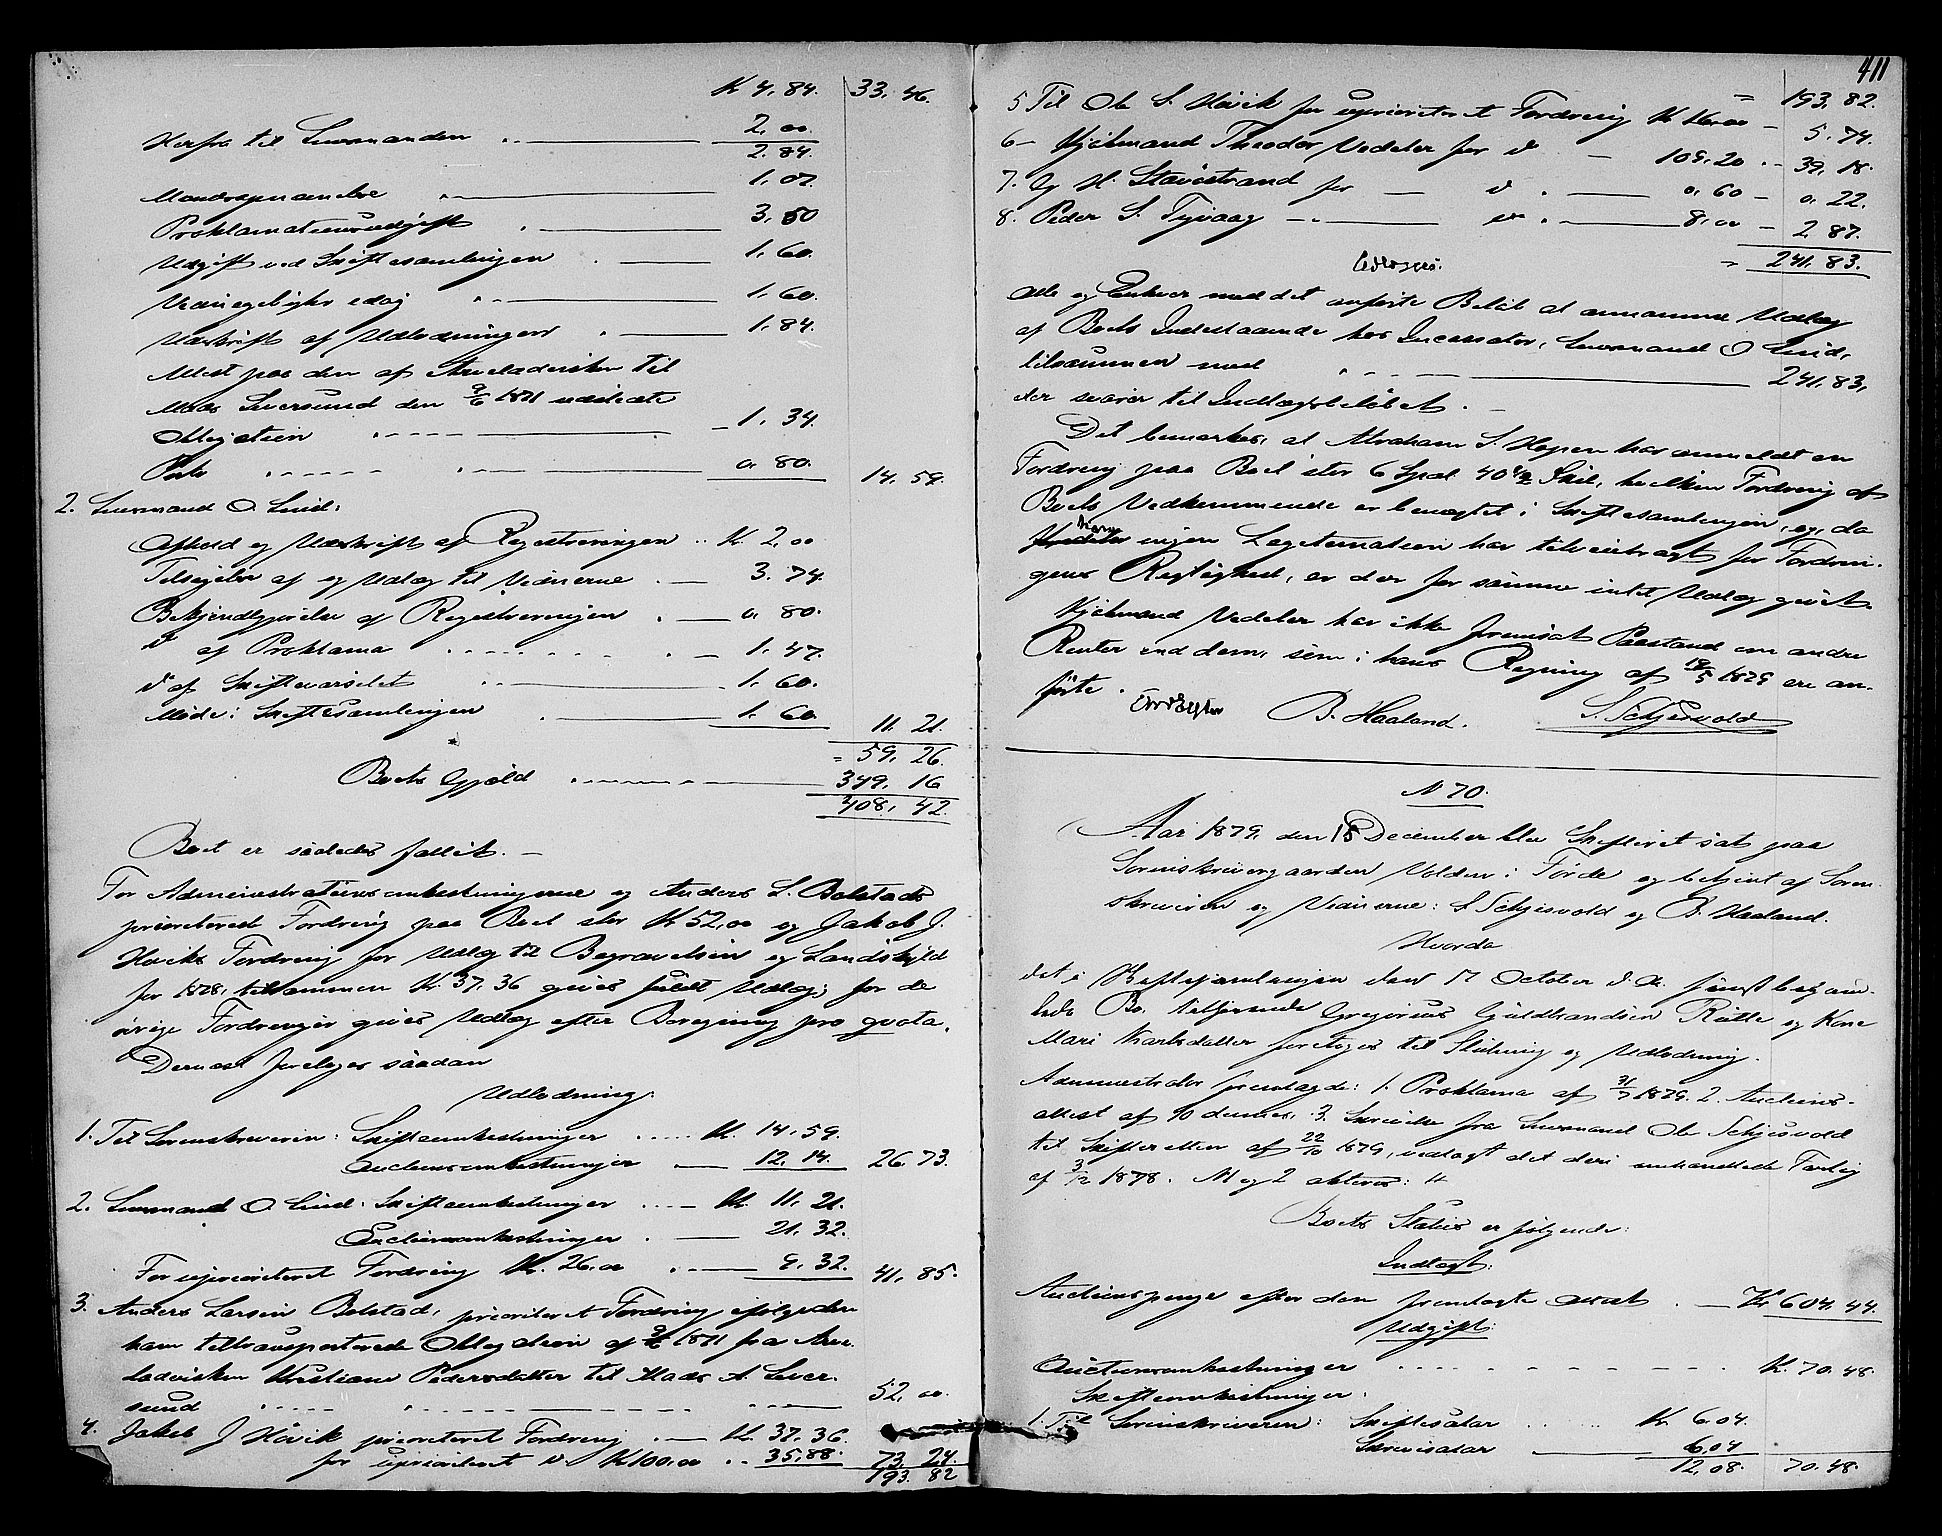 K 4. 84. 33. 46.
Herfra til Lensmanden 2,00.
2. 84.
1. 07.
Proklamationsudgift 3, 50
Udgift ved Skiftesamlingen 1. 60.
idag 1. 60.
Udskrift af Udlodningen 1. 84.
Attest paa den af til
den 9/6 1871 udstedte
Obligation 1. 34.
Porto 0. 80. 14. 59.
2. Lensmand O. Lind:
Afhold og Udskrift af Registreringen K. 2,00
Tilsigelse af og Udlæg til Vidnerne 3. 74.
Bekjendtgjørelse af Registreringen 0. 80.
d° af Proklama 1. 47.
d° af Skiftevarselet 1. 60.
Møde i Skiftesamlingen 1. 60. 11. 21.
= 59. 26.
Boets Gjæld 349. 16
408. 42.
Boet er således fallit. —
For Administrationsomkostningerne og Anders L. Bolstads
prioriteret Fordring paa Boet stor K 52,00 og Jakob J.
Høviks Fordring for Udlæg til Begravelsen og Landskyld
for 1878, tilsammen K. 37. 36 gives fuldt Udlæg; for de
øvrige Fordringer gives Udlæg efter Beregning pro qvota.
Dernæst foretoges saadan
Udlodning:
1. Til Sorenskriveren: Skifteomkostninger K. 14. 59.
Auctionsomkostninger 12. 14. 26. 73.
2. Lensmand O. Lind: Skifteomkostninger K. 11. 21.
Auctionsomkostninger 21. 32.
For uprioriteret Fordring K. 26,00 9. 32. 41. 85.
3. Anders Larsen Bolstad, prioriteret Fordring ifølge den
ham tiltransporterede Obligation af 9/6 1871 fra
Kristiane Pedersdatter til Mads A. Lever-
sund 52,00.
4. Jakob J Høvik prioriteret Fordring K. 37. 36.
for uprioriteret d° K 100,00 35,88. 73. 24.
193. 82
411
= 193. 82.
5 Til Ole S. Høvik for uprioriteret Fordring K 16,00 — 5. 74.
6 — Theodor Vedeler for d° — 109. 20 — 39. 18.
7. H. Stavøstrand for — d° 0. 60 — 0. 22.
8. Peder S. Tyvaag — d° 8,00 — 2. 87.
= 241. 83.
Alle og Enhver med det anførte Beløb at annamme Udlæg
af Boets Indestaaende hos Incassator, Lensmand O Lind,
tilsammen med 241. 83,
der svarer til Indtægtsbeløbet. —
Det bemærkes, at Abraham S. Hopen har anmeldt en
Fordring paa Boet stor 6 Spd. 40 1/2 Skil, hvilken Fordring af
Boets Vedkommende er benægtet i Skiftesamlingen, og, da
han ingen Legitimation har tilveiebragt for Fordrin-
gens Rigtighed, er der for samme intet Udlæg givet.
Vedeler har ikke fremsat Paastand om andre
Renter end dem, som i hans Regning af 19/5 1879 ere an-
førte.
B. Haaland. S. Schjesvold
N 70.
Aar 1879, den 18 December blev Skifteret sat paa
Sorenskrivergaarden Volden i Førde og betjent af Soren-
skriveren og Vidnerne: S Schjesvold og B. Haaland.
Hvorda
det i Skiftesamlingen den 17 October d. A. sidst behand-
lede Bo, tilhørende Gregorius Guldbrandsen Rutle og Kone
Mari Karlsdatter foretoges til Slutning og Udlodning.
Administrator fremlagde: 1. Proklama af 31/7 1879. 2. Auctions-
attest af 10 dennes. 3. Skrivelse fra Lensmand Ole Schjesvold
til Skifteretten af 22/10 1879, vedlagt det deri omhandlede Forlig
af 3/12 1878. N og 2 akteres: 4
Boets Status er følgende:
Indtægt:
Auctionspenge efter den fremlagte Attest K 604. 44.
Udgift:
Auctionsomkostninger K. 70. 48.
Skifteomkostninger:
1. Til Sorenskriveren: Skiftesalær K. 6.04.
Skriversalær 6,04
12. 08. 70. 48.